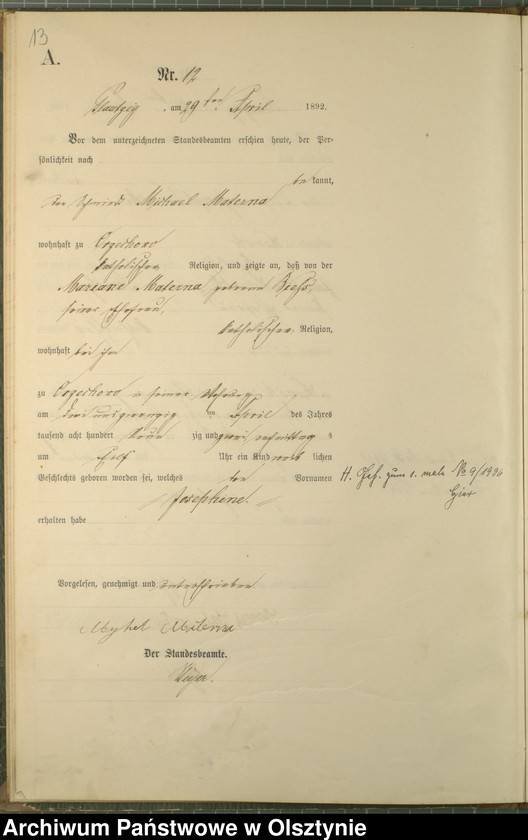 13
A.
Nr. 12
am 29ten April 1892.
Vor dem unterzeichneten Standesbeamten erschien heute, der Per-
sönlichkeit nach
be kannt,
der Schmied Michael Materna
wohnhaft zu Orzechowo
katholischer Religion, und zeigte an, daß von der
Mariane Materna geborene
seiner Ehefrau,
katholischer Religion,
wohnhaft bei ihm
zu Orzechowo in seiner Wohnung
am drei und zwanzig ten April des Jahres
tausend acht hundert neun zig und zwei nachmittag s
um Elf Uhr ein Kind weib lichen
Geschlechts geboren worden sei, welches den Vornamen
Josephine
erhalten habe
Vorgelesen, genehmigt und unterschrieben
Mychel Materna
Der Standesbeamte.
H. Geh. zum 1. male No 9/19
hier
Archiwum Państwowe w Olsztynie